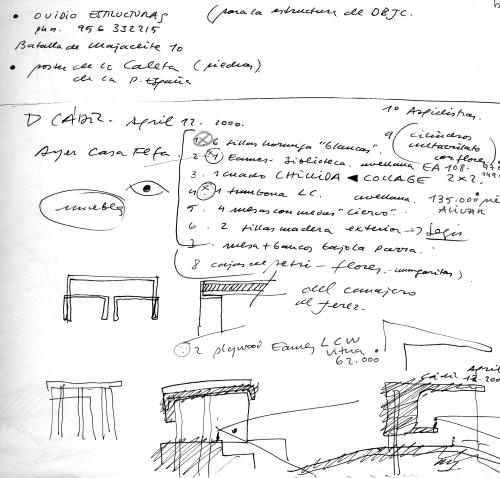 • OVIDIO ESTRUCTURAS (para la estructura de DBJC.
phn. 956 332215
Batalla de Majaceite 10
• poster de la Caleta (piedras)
de la P. España
D CÁDIZ. April 12. 2000.
10 Aspidistras
Ayer Casa Fefa.
muebles
1 6 sillas hormiga "blancas".
9 cilindros metacrilato con flores
2 1 Eames - biblioteca. avellana EA 108.
3. 1 cuadro CHILLIDA ◀ COLLAGE 2x2.
4. 1 tumbona LC. avellana. 135.000
5. 4 mesas con ruedas "ciervo".
6. 2 sillas madera exterior →
7. mesa + bancos bajo la parra.
8 cajas de petri - flores. margaritas)
del consejero
de Jerez.
2 plywood Eames LCW
vitra
62.000
Cádiz April
12.200